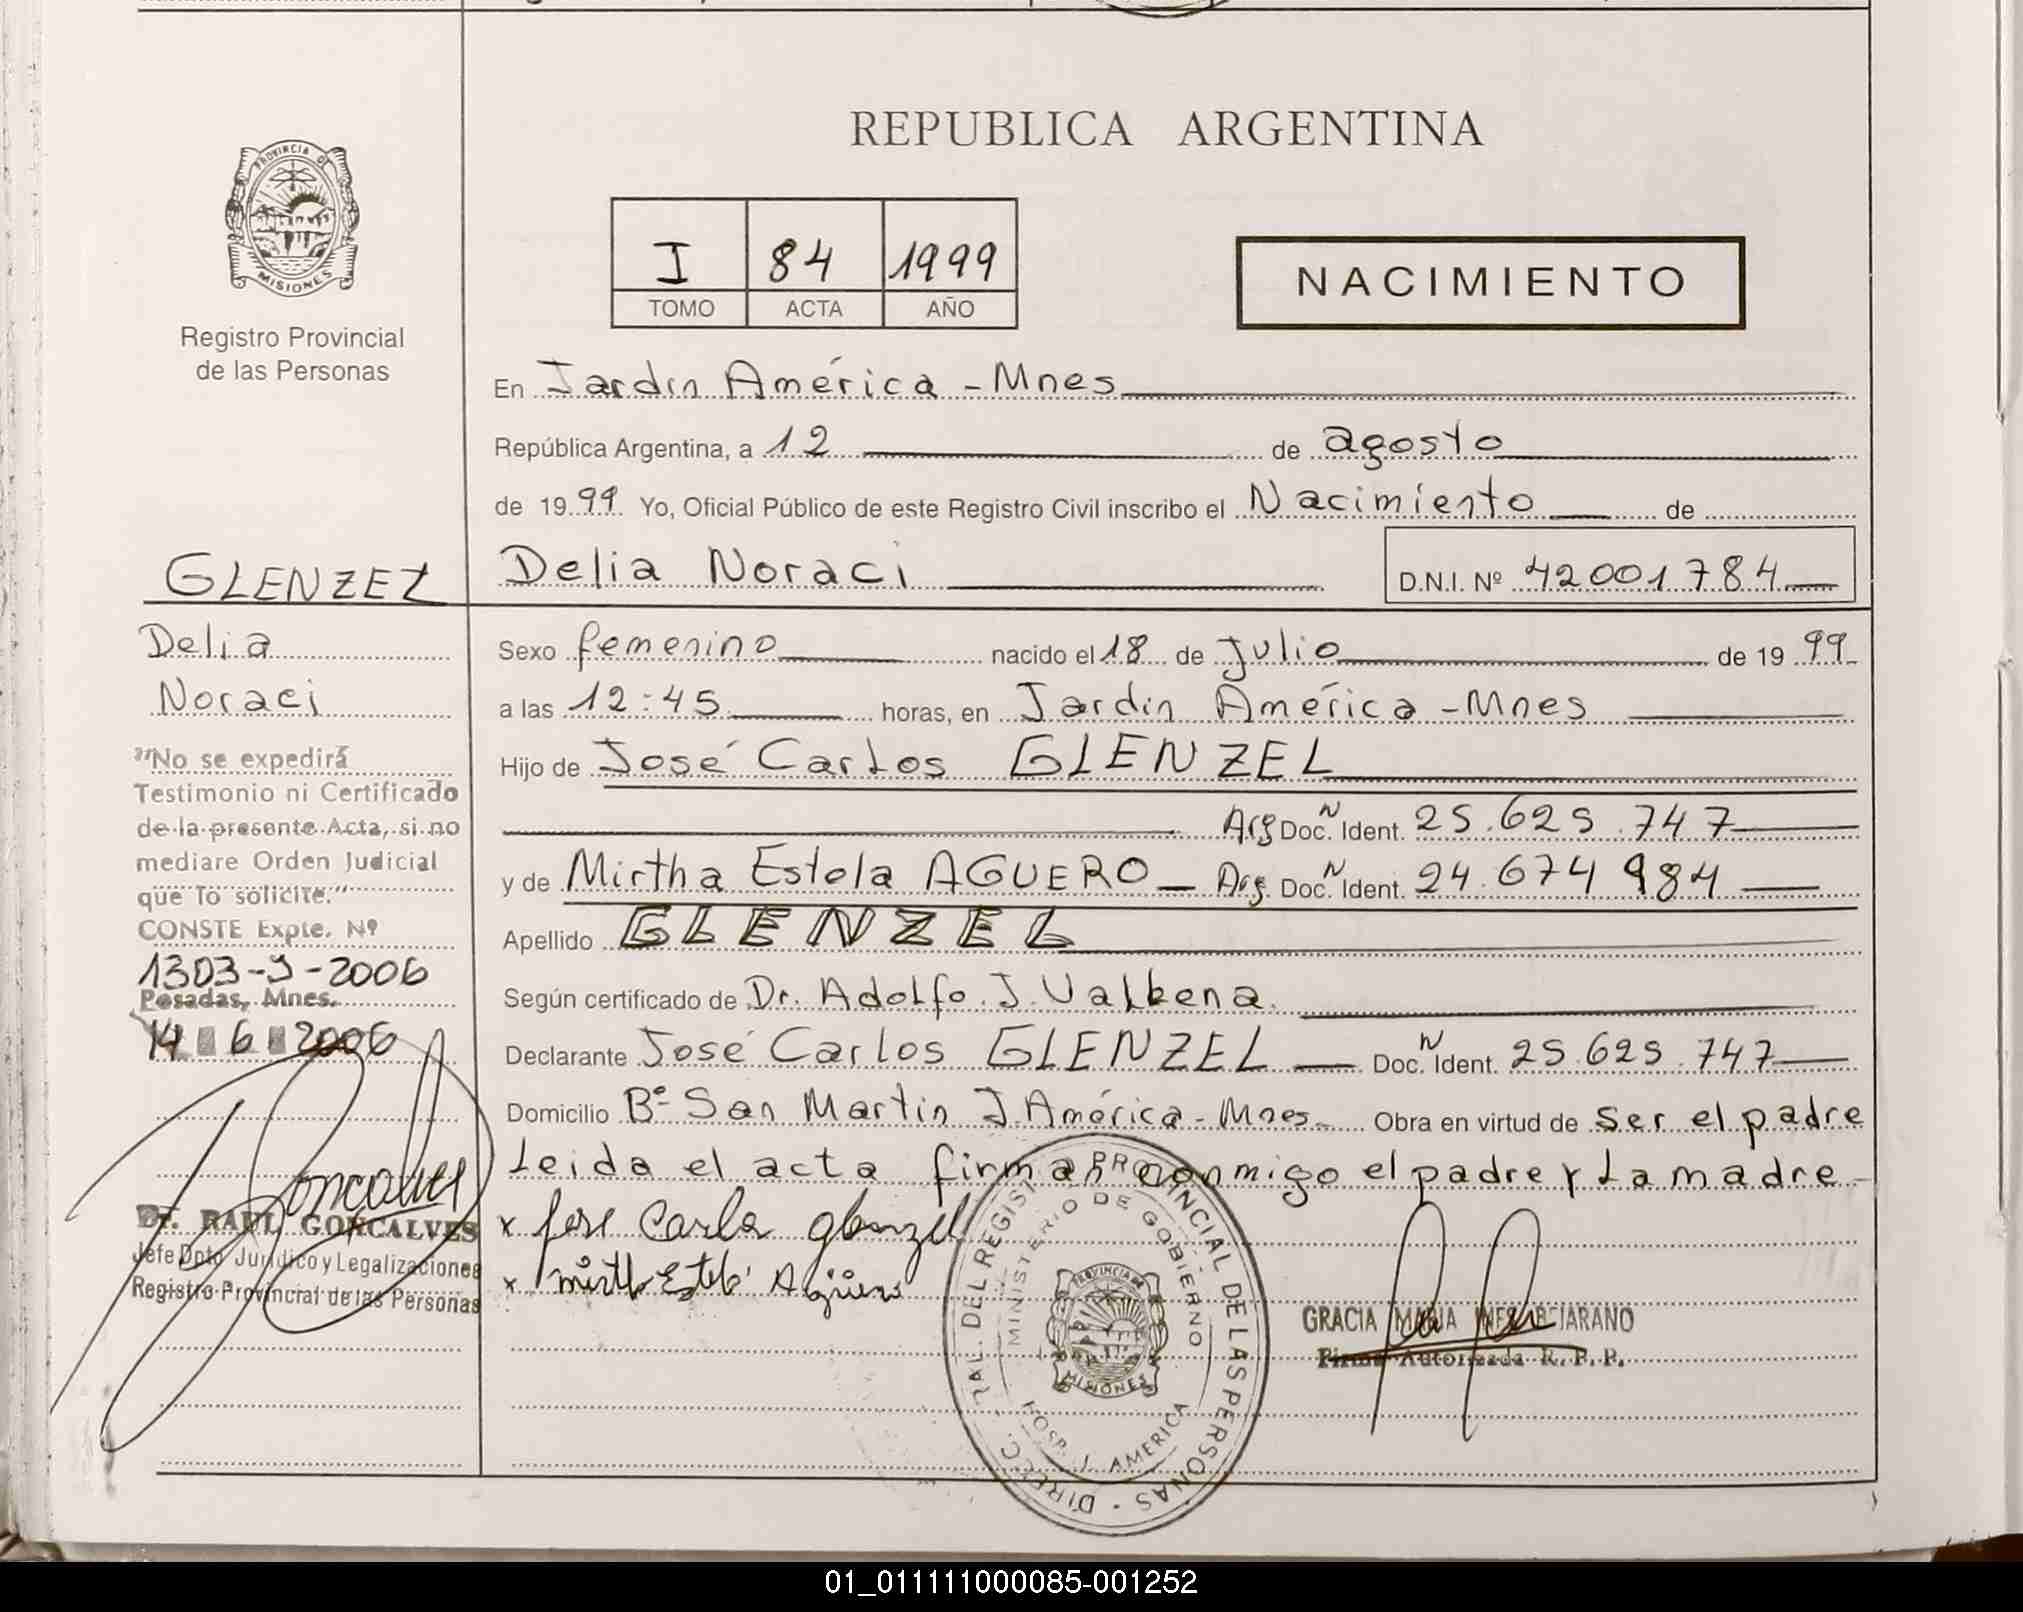 REPUBLICA ARGENTINA
PROVINCIA DE
MISIONES
Registro Provincial
de las Personas
I 84 1999
TOMO ACTA AÑO
NACIMIENTO
En Jardín América - Mnes
República Argentina, a 12 de agosto
de 1999 Yo, Oficial Público de este Registro Civil inscribo el Nacimiento de
Delia Noraci D.N.I. Nº 42001784
GLENZEL
Delia
Noraci
"No se expedirá
Testimonio ni Certificado
de la presente Acta, si no
mediare Orden Judicial
que lo solicite."
CONSTE Expte. Nº
1303-J-2006
Posadas, Mnes.
14 6 2006
Goncalves
Dr. RAUL GONCALVES
Jefe Dpto Jurídico y Legalizaciones
Registro Provincial de las Personas
Sexo femenino nacido el 18 de Julio de 1999
a las 12:45 horas, en Jardín América - Mnes
Hijo de José Carlos GLENZEL
Arg Doc. N Ident. 25.625.747
y de Mirtha Estela AGUERO Arg. Doc. N Ident. 24.674 984
Apellido GLENZEL
Según certificado de Dr. Adolfo J. Valbena
Declarante José Carlos GLENZEL Doc. N Ident. 25.625.747
Domicilio Bº San Martín J. América - Mnes Obra en virtud de ser el padre
Leida el acta firman conmigo el padre y La madre
x Jose Carlo glenzel
x Mirth Estela Agüero
DIRECC. GRAL. DEL REGISTRO PROVINCIAL DE LAS PERSONAS
MINISTERIO DE GOBIERNO
PROVINCIA DE
MISIONES
HOSP. J. AMERICA
GRACIA MARIA INES BEJARANO
Firma Autorizada R. P. P.
01_011111000085-001252